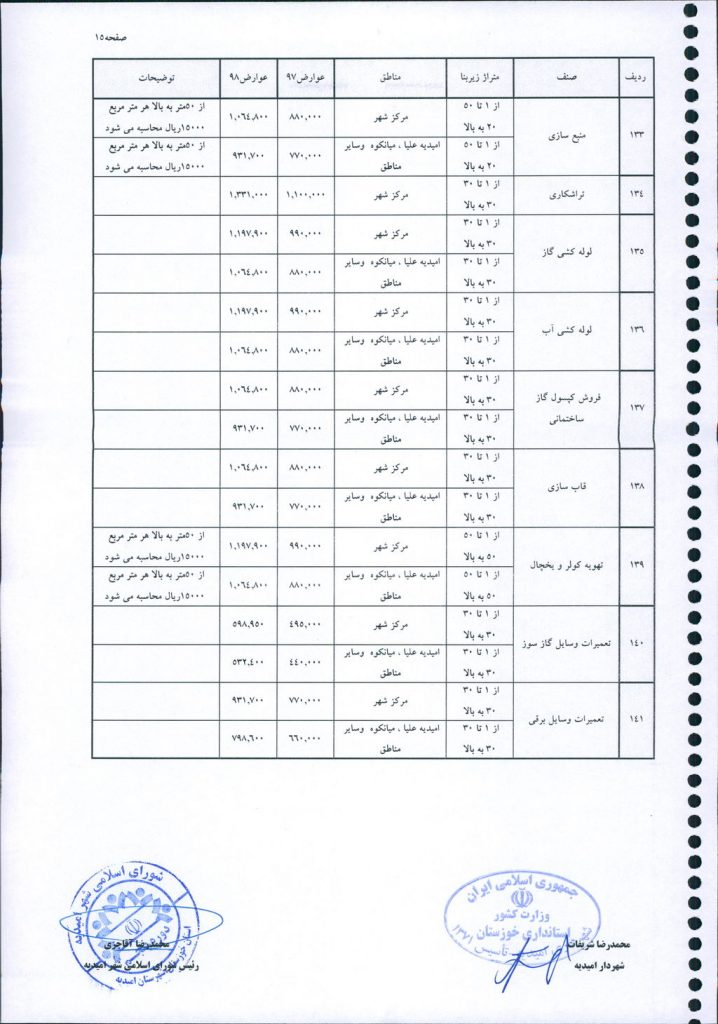 صفحه۱۵
ردیف صنف متراژ زیربنا مناطق عوارض۹۷ عوارض۹۸ توضیحات
۱۳۳ منبع سازی
از ۱ تا ۵۰
۲۰ به بالا
مرکز شهر ۸۸۰,۰۰۰ ۱,۰٦٤,۸۰۰
از ۵۰متر به بالا هر متر مربع
۱۵۰۰۰ریال محاسبه می شود
از ۱ تا ۵۰
۲۰ به بالا
امیدیه علیا ، میانکوه وسایر
مناطق
۷۷۰,۰۰۰ ۹۳۱,۷۰۰
از ۵۰متر به بالا هر متر مربع
۱۵۰۰۰ریال محاسبه می شود
۱۳٤ تراشکاری
از ۱ تا ۳۰
۳۰ به بالا
مرکز شهر ۱,۱۰۰,۰۰۰ ۱,۳۳۱,۰۰۰
۱۳۵ لوله کشی گاز
از ۱ تا ۳۰
۳۰ به بالا
مرکز شهر ۹۹۰,۰۰۰ ۱,۱۹۷,۹۰۰
از ۱ تا ۳۰
۳۰ به بالا
امیدیه علیا ، میانکوه وسایر
مناطق
۸۸۰,۰۰۰ ۱,۰٦٤,۸۰۰
۱۳٦ لوله کشی آب
از ۱ تا ۳۰
۳۰ به بالا
مرکز شهر ۹۹۰,۰۰۰ ۱,۱۹۷,۹۰۰
از ۱ تا ۳۰
۳۰ به بالا
امیدیه علیا ، میانکوه وسایر
مناطق
۸۸۰,۰۰۰ ۱,۰٦٤,۸۰۰
۱۳۷ فروش کپسول گاز
ساختمانی
از ۱ تا ۳۰
۳۰ به بالا
مرکز شهر ۸۸۰,۰۰۰ ۱,۰٦٤,۸۰۰
از ۱ تا ۳۰
۳۰ به بالا
امیدیه علیا ، میانکوه وسایر
مناطق
۷۷۰,۰۰۰ ۹۳۱,۷۰۰
۱۳۸ قاب سازی
از ۱ تا ۳۰
۳۰ به بالا
مرکز شهر ۸۸۰,۰۰۰ ۱,۰٦٤,۸۰۰
از ۱ تا ۳۰
۳۰ به بالا
امیدیه علیا ، میانکوه وسایر
مناطق
۷۷۰,۰۰۰ ۹۳۱,۷۰۰
۱۳۹ تهویه کولر و یخچال
از ۱ تا ۵۰
۵۰ به بالا
مرکز شهر ۹۹۰,۰۰۰ ۱,۱۹۷,۹۰۰
از ۵۰متر به بالا هر متر مربع
۱۵۰۰۰ریال محاسبه می شود
از ۱ تا ۵۰
۵۰ به بالا
امیدیه علیا ، میانکوه وسایر
مناطق
۸۸۰,۰۰۰ ۱,۰٦٤,۸۰۰
از ۵۰متر به بالا هر متر مربع
۱۵۰۰۰ریال محاسبه می شود
۱٤۰ تعمیرات وسایل گاز سوز
از ۱ تا ۳۰
۳۰ به بالا
مرکز شهر ٤۹۵,۰۰۰ ۵۹۸,۹۵۰
از ۱ تا ۳۰
۳۰ به بالا
امیدیه علیا ، میانکوه وسایر
مناطق
٤٤۰,۰۰۰ ۵۳۲,٤۰۰
۱٤۱ تعمیرات وسایل برقی
از ۱ تا ۳۰
۳۰ به بالا
مرکز شهر ۷۷۰,۰۰۰ ۹۳۱,۷۰۰
از ۱ تا ۳۰
۳۰ به بالا
امیدیه علیا ، میانکوه وسایر
مناطق
٦٦۰,۰۰۰ ۷۹۸,٦۰۰
جمهوری اسلامی ایران
وزارت کشور
استانداری خوزستان
تأسیس ۱۳۷۱
محمدرضا شریفات
شهردار امیدیه
شورای اسلامی شهر امیدیه
محمدرضا آقاجری
رئیس شورای اسلامی شهر امیدیه